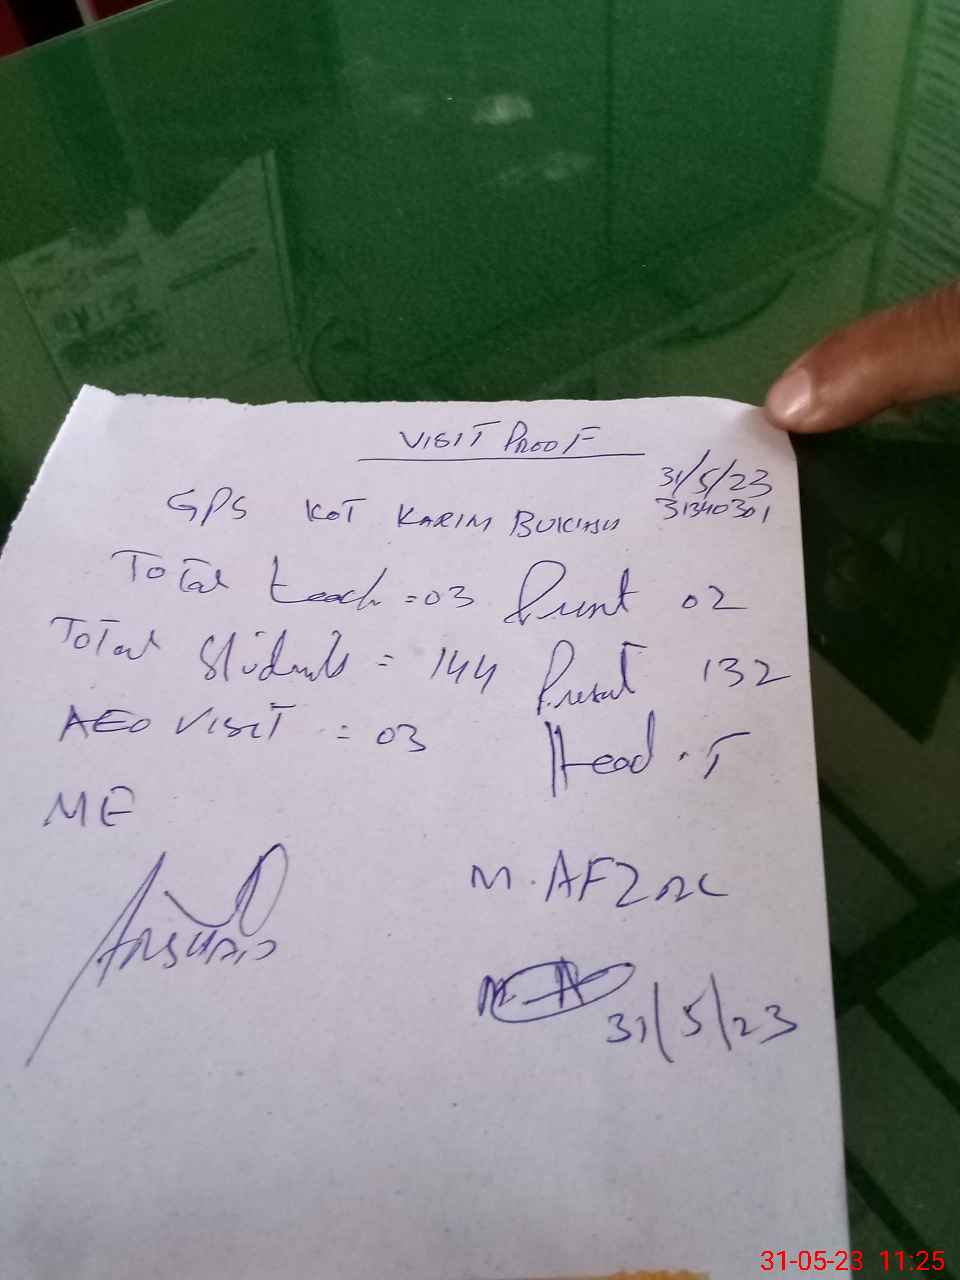 VISIT PROOF
31/5/23
GPS KOT KARIM BUKHSH 31340301
Total teach = 03 Present 02
Total Students = 144 Present 132
AEO VISIT = 03 Head . T
ME
M. AFZAL
ARSHAD
31/5/23
31-05-23 11:25